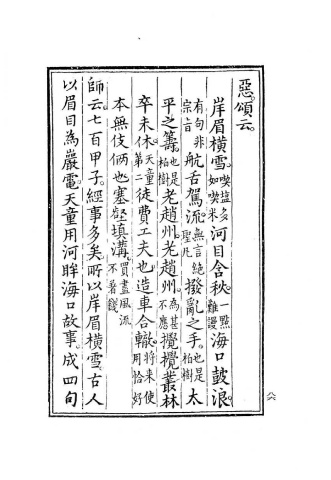 惡。頌云。
岸眉橫雪。喫鹽多如喫米河目含秋。一點難謾海口鼓浪。
有句非宗旨航舌駕流。無言絕聖凡撥亂之手。也是柏樹太
平之籌。也是柏樹老趙州老趙州。為甚不應攪攪叢林
卒未休。天童第二徒費工夫也造車合轍。將來使用恰好
本無伎倆也塞壑填溝。買盡風流不著錢
師云。七百甲子。經事多矣。所以岸眉橫雪。古人
以眉目為巖電。天童用河眸海口故事。成四句
八六